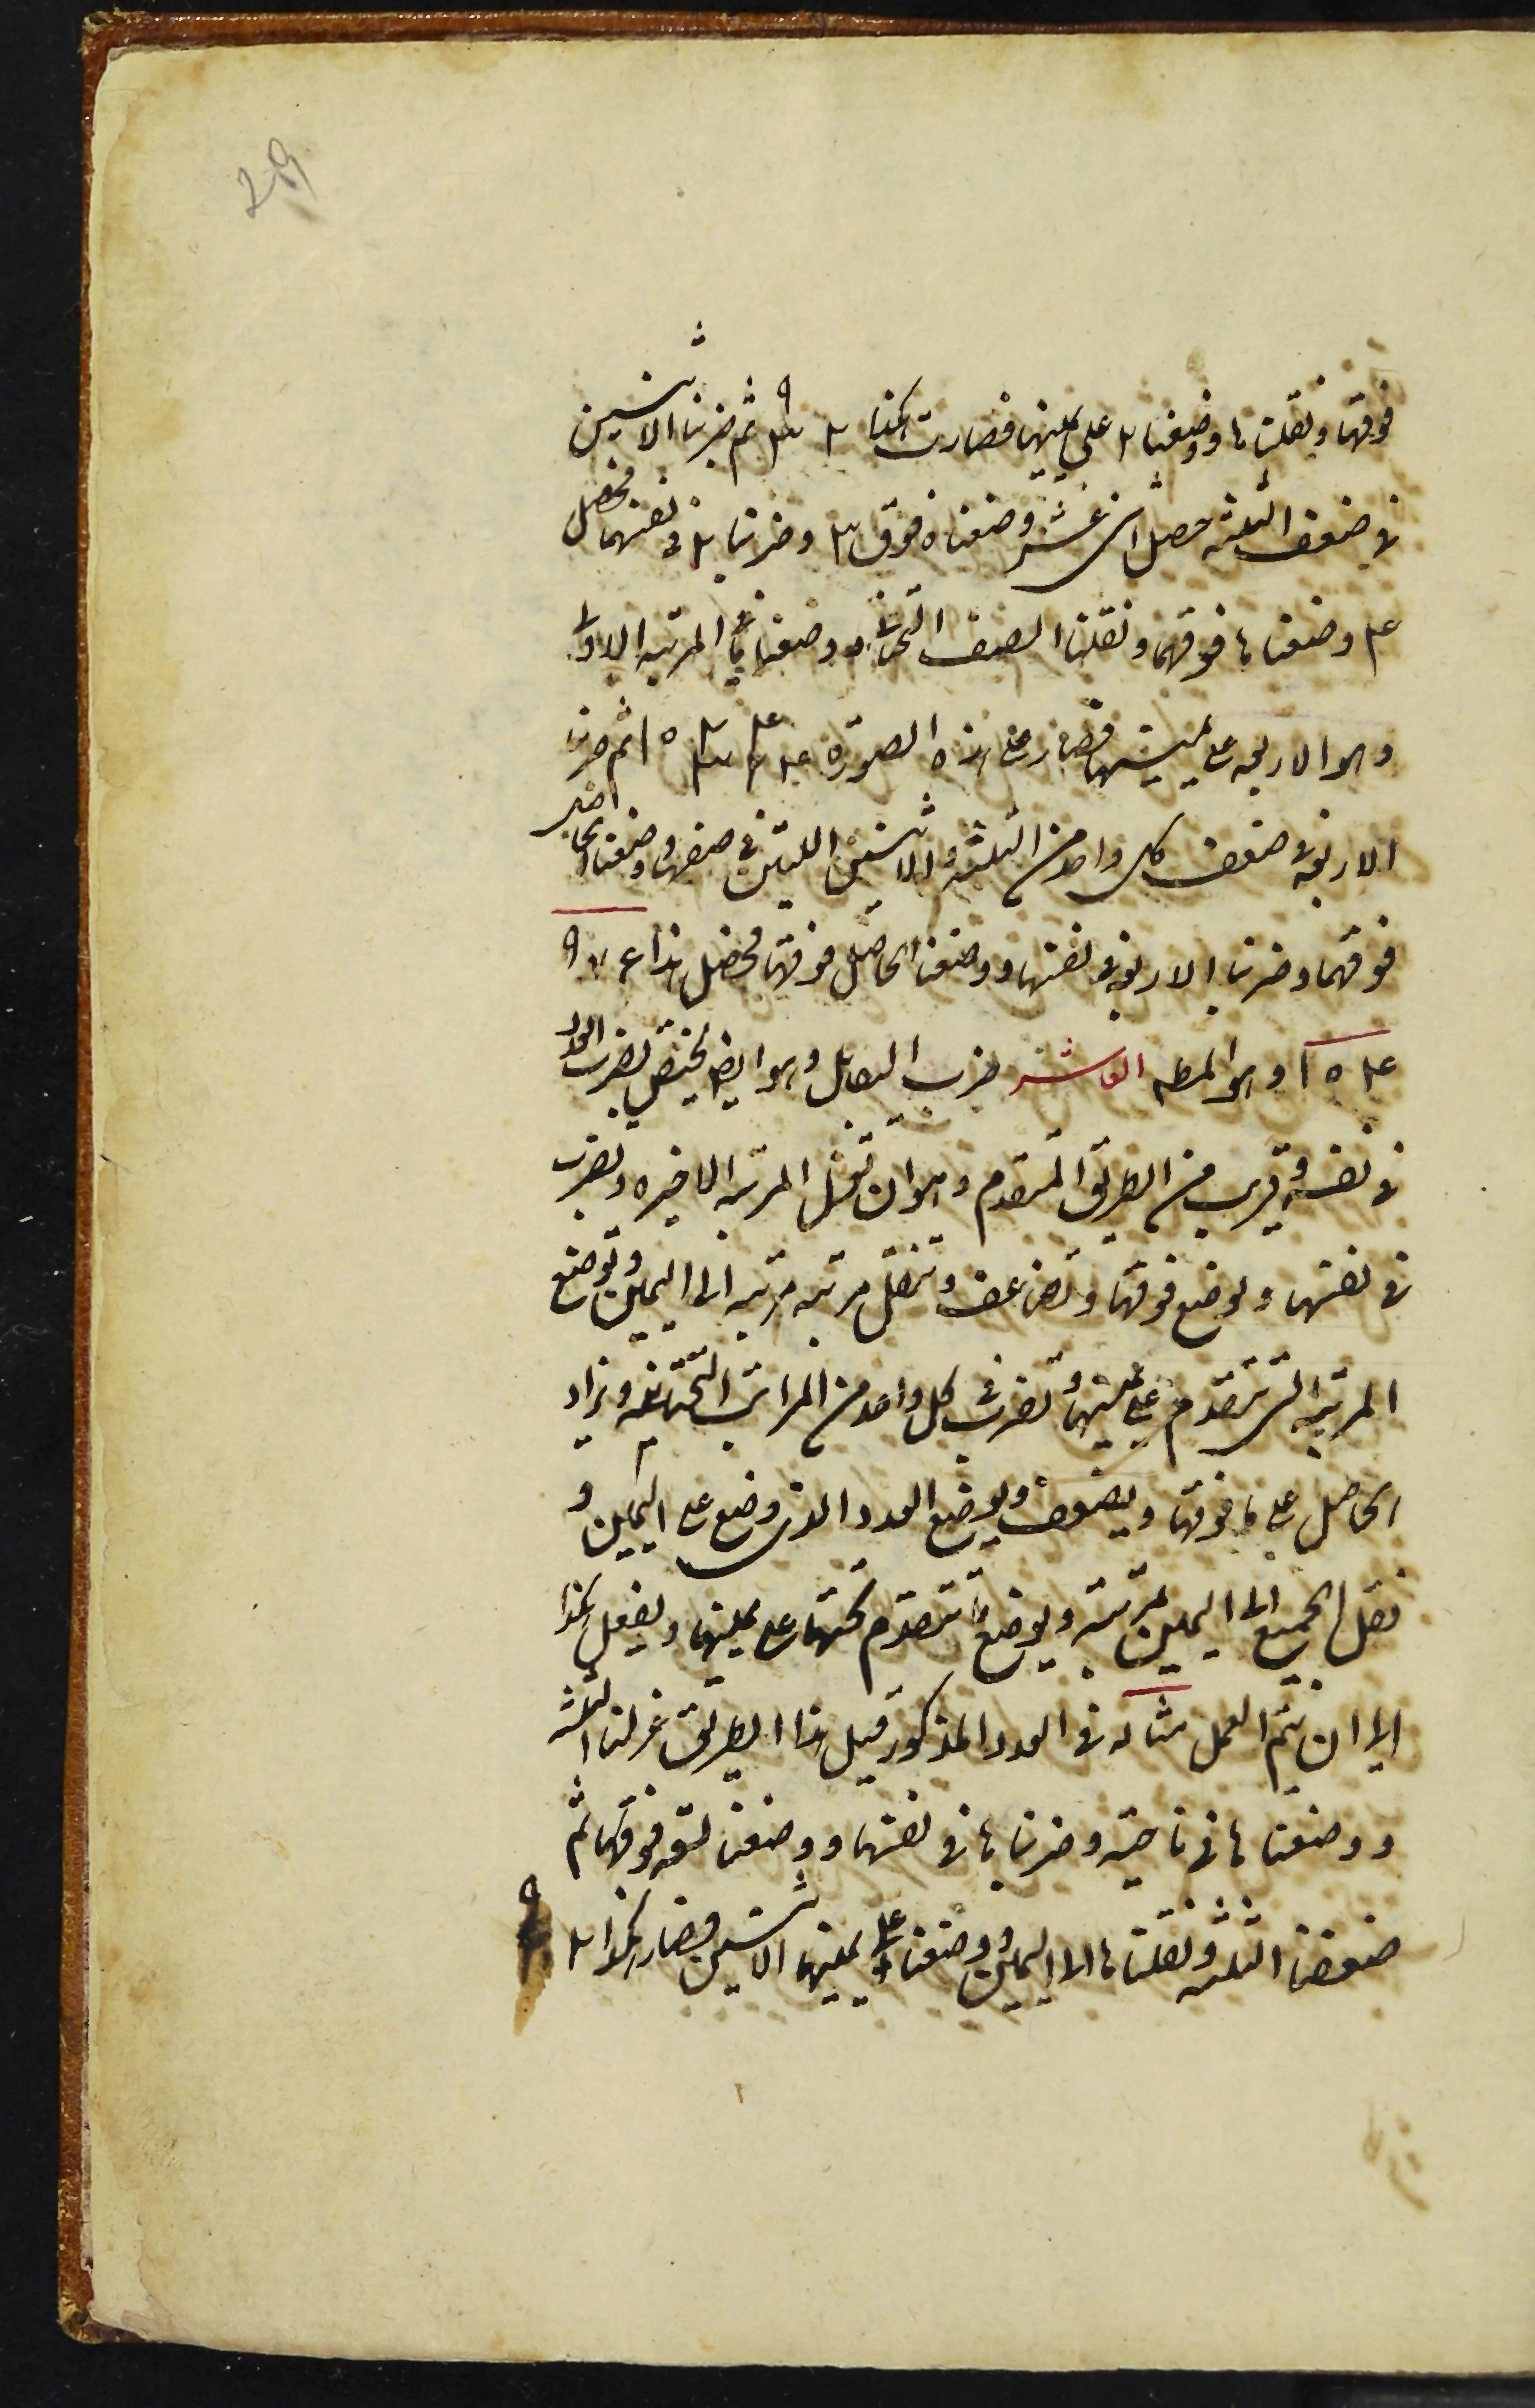 29
فوقها ونقلناها ووضعنا ٢ على يمينها فصارت هكذا ٢ ٣ ٩ ثم ضربنا الاثنين
في ضعف الثلثه حصل اثنى عشر وضعناه فوق ٢ وضربنا ٢ في نفسها فحصل
٤ وضعناها فوقها ونقلنا الصف التحتانى ووضعنا ما في المرتبه الاولى
وهو الاربعه على يمينها فصار على هذه الصورة ثم ضربنا
الاربعه في ضعف كل واحد من الثلثه والاثنين اللتين في صفها ووضعنا الحاصل
فوقهما وضربنا الاربعه في نفسها ووضعنا الحاصل فوقها فحصل هذا ٩٧٦
١٠٤ وهو المط العاشر ضرب التقابل وهو ايضا يختص بضرب العدد
في نفسه وقريب من الطريق المتقدم وهو ان تعزل المرتبه الاخيره وتضرب
في نفسها ويوضع فوقها وتضاعف وتنقل مرتبه مرتبه الى اليمين وتوضع
المرتبه التى تتقدم على يمينها وتضرب في كل واحد من المراتب التحتانيه ويزاد
الحاصل على ما فوقها ويضعف ويوضع العدد الذى وضع على اليمين و
نقل الجميع الى اليمين بمرتبه ويوضع ما تتقدم تحتها على يمينها ويفعل هكذا
الى ان يتم العمل مثاله في العدد المذكور قبل هذا الطريق عزلنا الثلثه
ووضعناها في ناحيه وضربناها في نفسها ووضعنا تسعه فوقها ثم
ضعفنا الثلثه ونقلناها الى اليمين ووضعنا على يمينها الاثنين فصار هكذا ٢ ٩